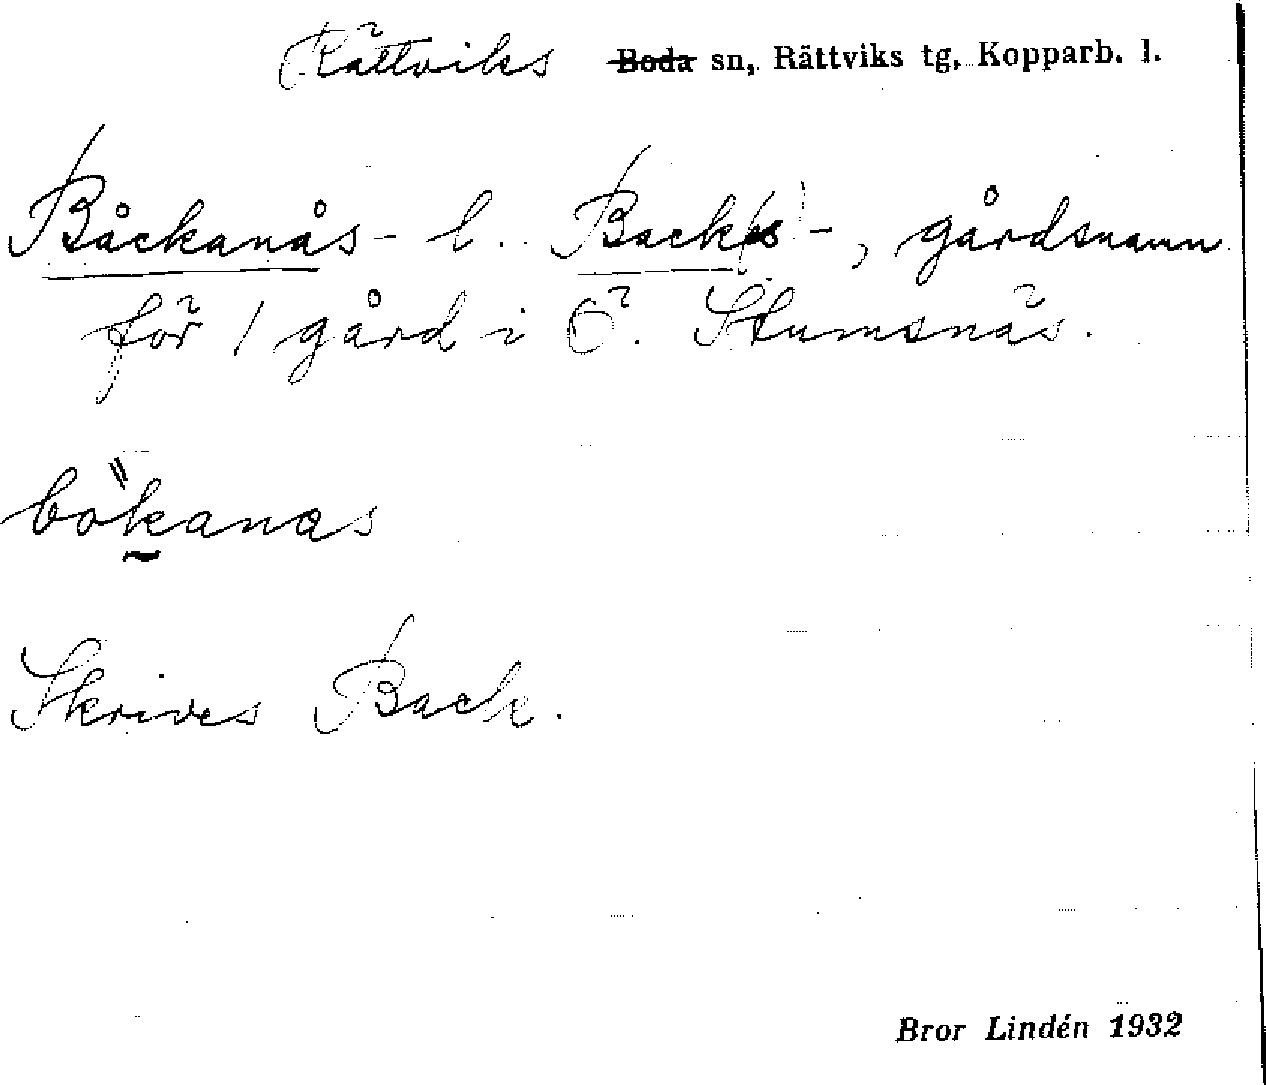 Rättviks Boda sn, Rättviks tg, Kopparb. l.
Båckanås- l. Back(s)-, gårdsnamn
för 1 gård i Ö. Stumsnäs.
bökanas
Skrives Back.
Bror Lindén 1932